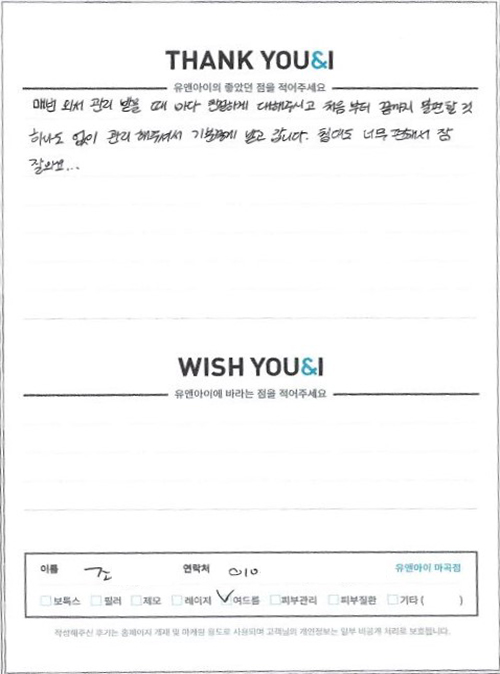 THANK YOU&I
유앤아이의 좋았던 점을 적어주세요
매번 와서 관리 받을 때 마다 친절하게 대해주시고 처음부터 끝까지 불편한 것
하나도 없이 관리 해주셔서 기분좋게 받고 갑니다. 침대도 너무 편해서 잠
잘와요...
WISH YOU&I
유앤아이에 바라는 점을 적어주세요
이름 조 연락처 010 유앤아이 마곡점
보톡스 필러 제모 레이저 여드름 피부관리 피부질환 기타 ( )
작성해주신 후기는 홈페이지 게재 및 마케팅 용도로 사용되며 고객님의 개인정보는 일부 비공개 처리로 보호됩니다.